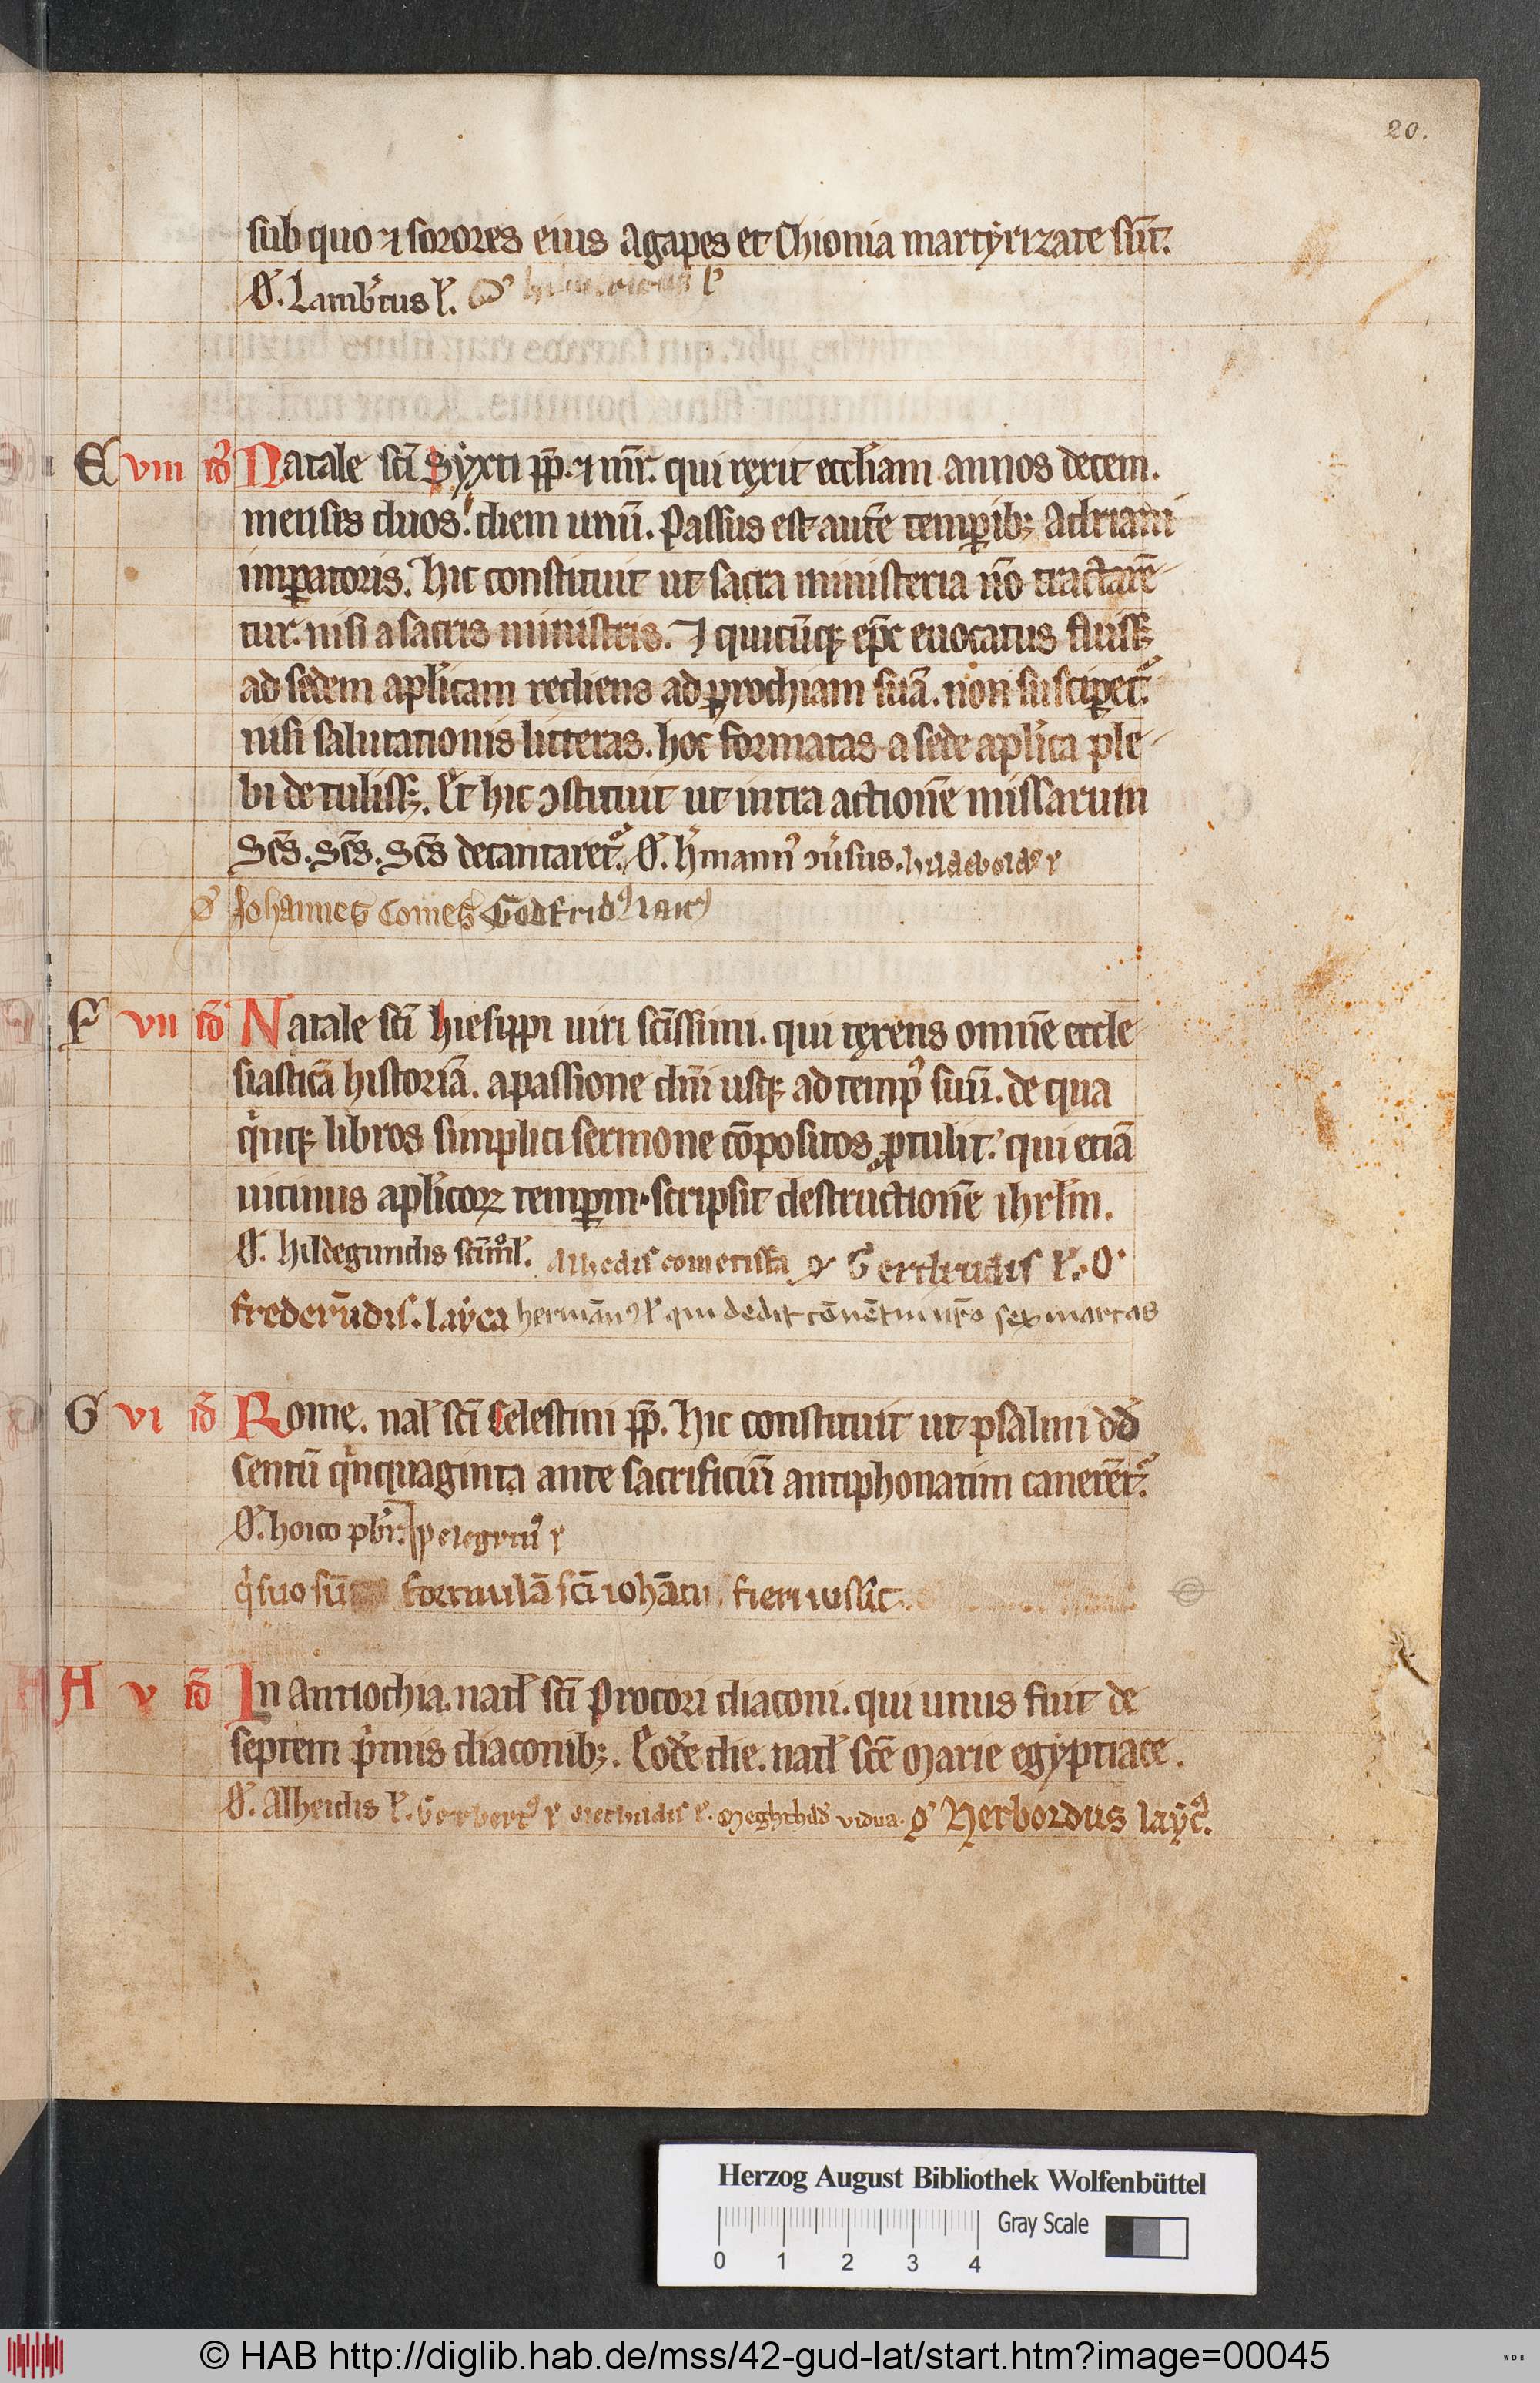 20.
sub quo ⁊ sorores eius agapes et Chionia martẏrizate sūt.
O᷑. Lamb̓tus l̓. O᷑ l̓
E viii id᷑ Natale sc̄i Sẏxti pp̄. ⁊ mr̄. qui rexit eccl̓iam annos decem.
menses duos. diem unū. Passus est autē temꝑib; Adriani
imꝑatoris. Hic constituit ut sacra ministeria nō tractarē
tur. nisi a sacris ministris. ⁊ quicūq; ep̄c euocatus fuiss;
ad sedem apl̓icam rediens ad ꝑrochiam suā. non susciꝑet᷑.
nisi salutationis litteras. hoc formatas a sede apl̓ica ple
bi detuliss;. Et hic ↄstituit ut intra actionē missarum
Sc̄s. Sc̄s. Sc̄s decantaret᷑. O᷑. h̓mannꝰ ↄu̓sus. hildeboldꝰ
O᷑ Johannes Comes Godfridꝰ laicꝰ
F vii id᷑ Natale sc̄i hiesippi uiri sc̄issimi. qui texens omnē eccle
siasticā historiā. a passione dn̄i usq; ad tempꝰ suū. de qua
qͥnq; libros simplici sermone cōpositos ꝓtulit. qui etiā
uicinus apl̓icoꝝ temꝑm. scripsit destructionē ihrl̓m.
O᷑. Hildegundis Alhedis cometissa Gertrudis l̓. O᷑
frederūdis. laẏca hermānꝰ l̓ qui dedit cōuētui nr̄o sex marcas
G vi id᷑ Rome. nat̓ sc̄i Celestini pp̄. Hic constituit ut psalmi dd̄
centū qͥnquaginta ante sacrificiū antiphonatim canerēt᷑.
O᷑. hoico pb̓r. peregrinꝰ
formulā sc̄i iohānis fieri iussit
A v id᷑ In Antiochia. nat̓ sc̄i Procori diaconi. qui unus fuit de
septem pͥmis diaconib;. Eodē die. nat̓ sc̄e Marie egẏptiace.
O᷑. Alheidis l̓. Gerbertꝰ Meghthild̓ vidua. O᷑ Herbordus laẏcꝰ.
Herzog August Bibliothek Wolfenbüttel
Gray Scale
0 1 2 3 4
© HAB http://diglib.hab.de/mss/42-gud-lat/start.htm?image=00045
WDB